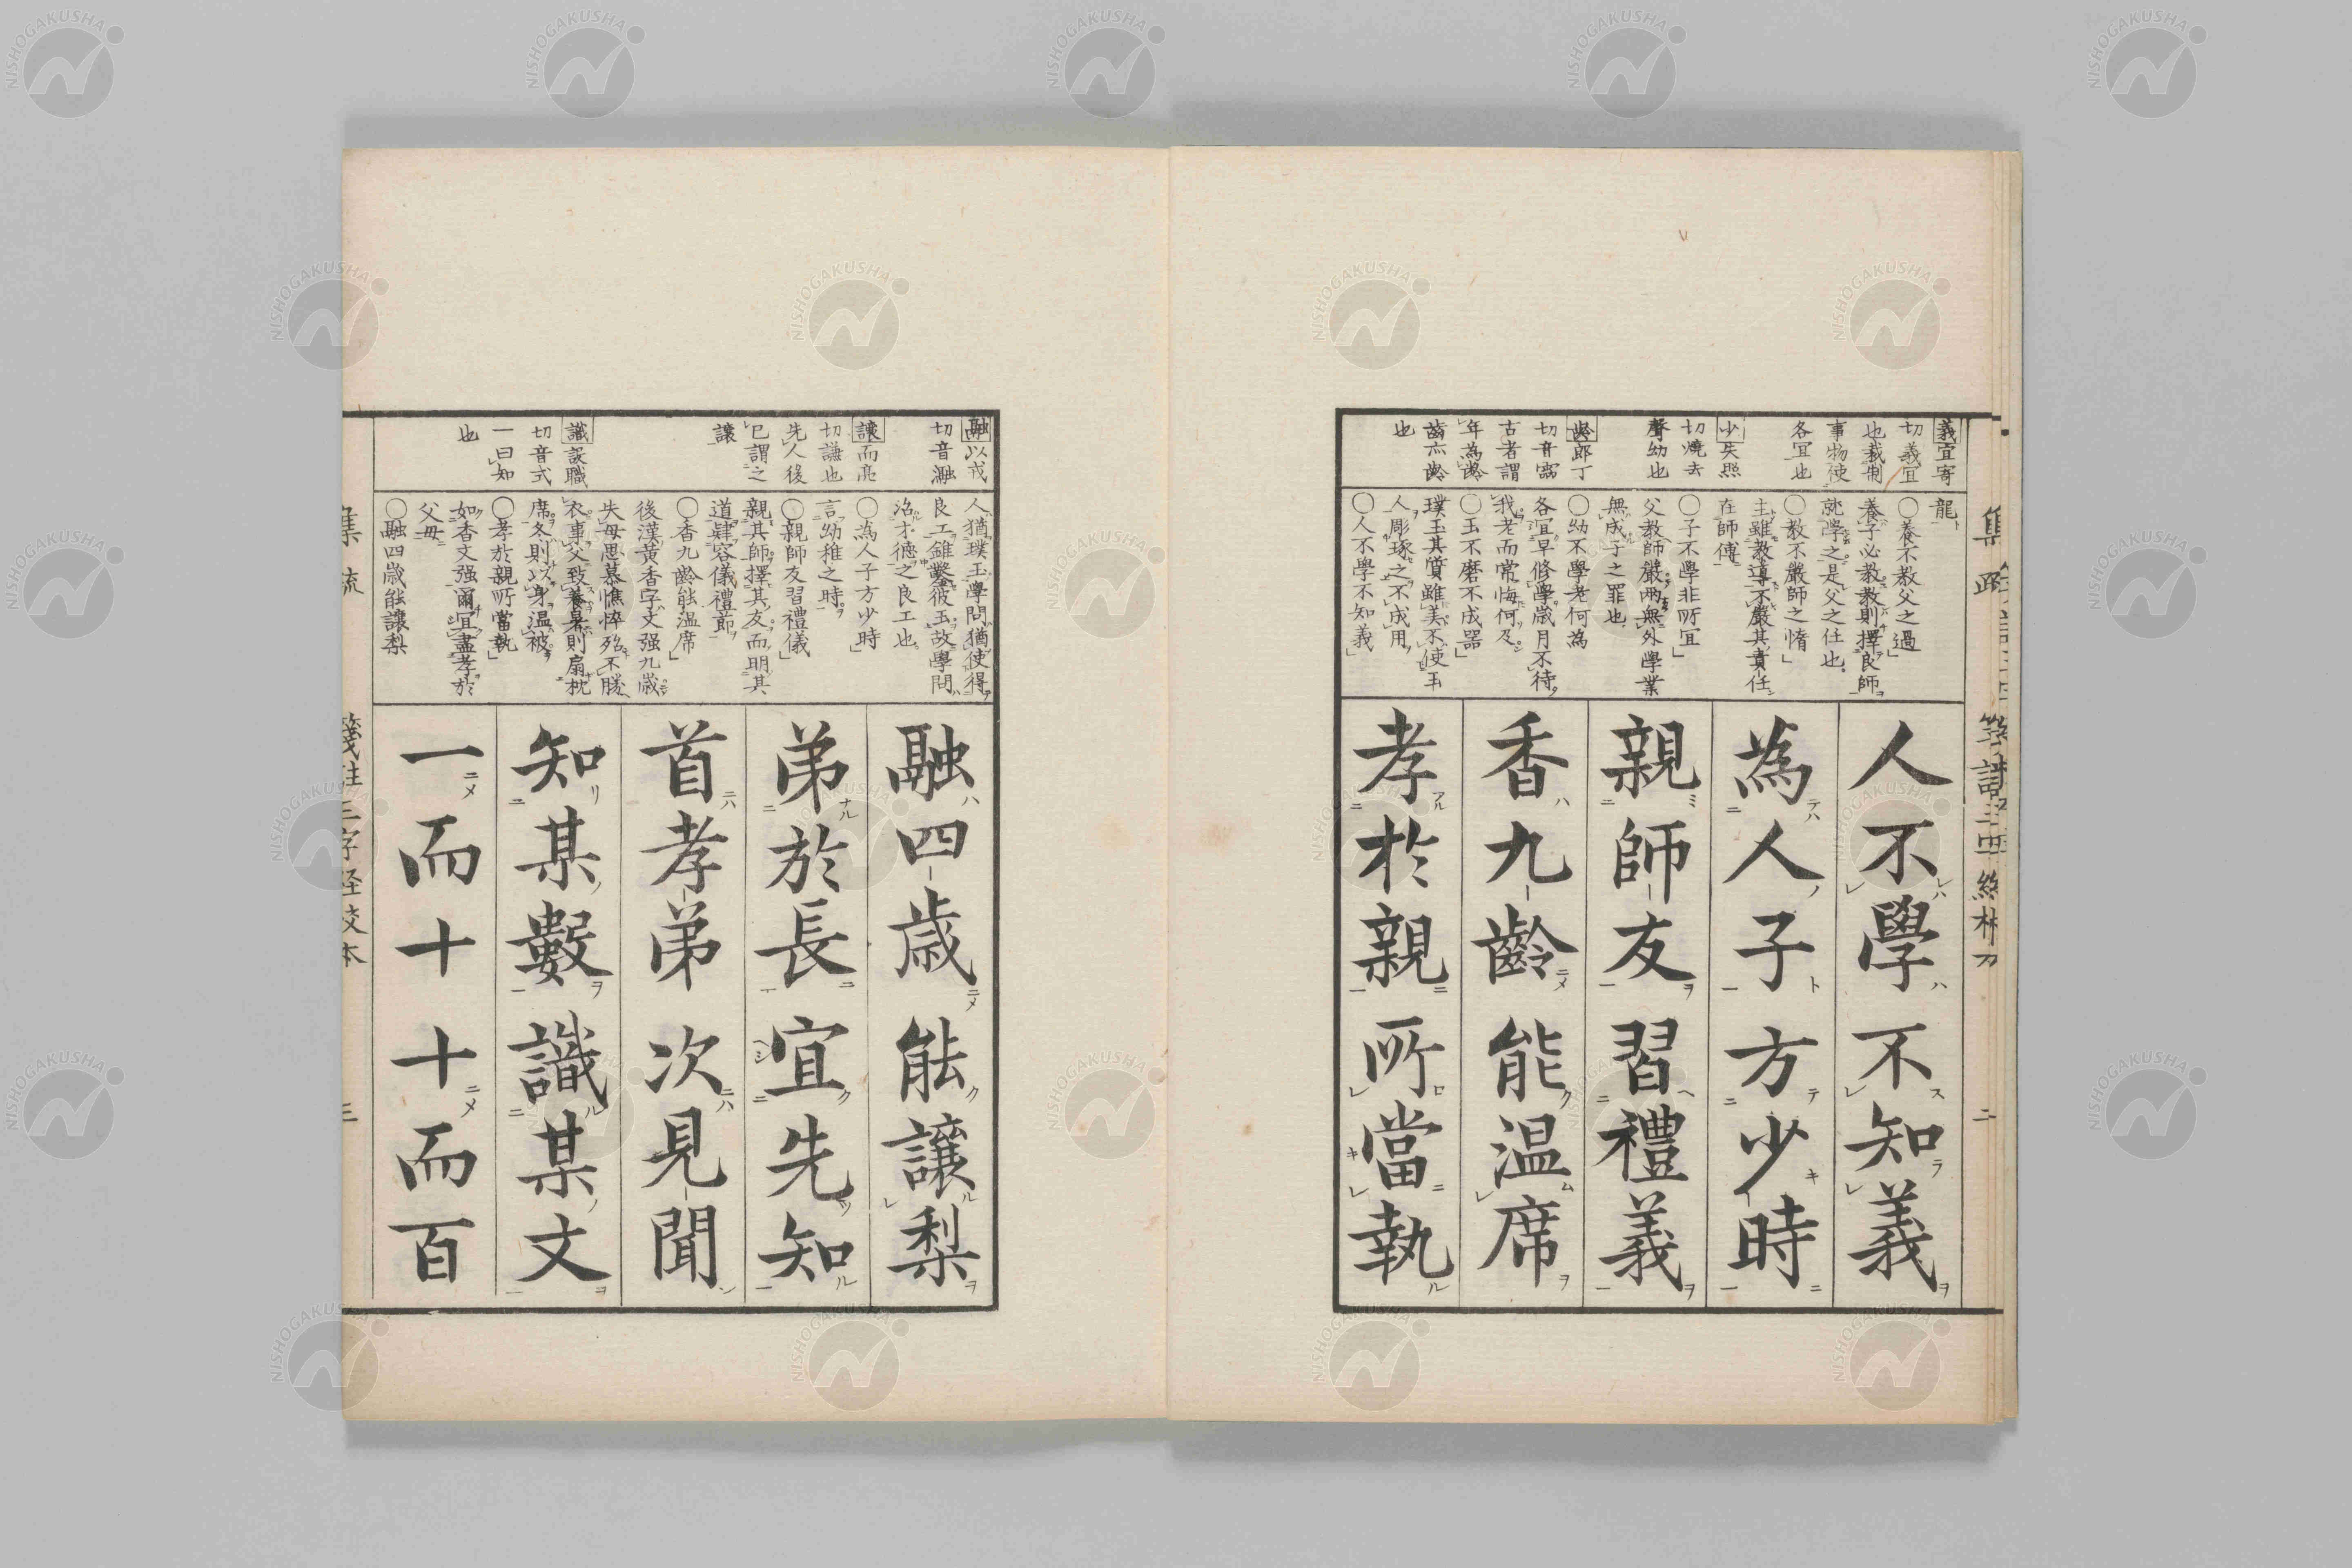 義宜寄
切義宜
也裁制
事物使
各宜也
少失照
切燒去
聲幼也
齡郎丁
切音
古者謂
年為齡
齒亦齡
也
龍
〇養不教父之過
養子必教教則擇良師
就學之是父之任也
〇教不嚴師之惰
主雖教導不嚴其責任
在師傅
〇子不學非所宜
父教師嚴兩無外學業
無成子之罪也
〇幼不學老何為
各宜早修學歲月不待
我老而常悔何及
〇玉不磨不成器
璞玉其質雖美不使玉
人彫琢之不成用
〇人不學不知義
人不學不知義
為人子方少時
親師友習禮義
香九齡能温席
孝於親所當執
二
融以戎
切音瀜
讓而亮
切謙也
先人後
已謂之
讓
識設職
切音式
一曰知
也
人猶璞玉學問猶使得
良工錐鑿彼玉故學問
洺才德之良工也
〇為人子方少時
言幼稚之時
〇親師友習禮儀
親其師擇其友而明其
道肄容儀禮節
〇香九齡能温席
後漢黃香字文强九歲
失母思慕憔悴殆不勝
衣事父致養暑則扇枕
席冬則以身温被
〇孝於親所當執
如香文强爾宜盡孝於
父母
〇融四歲能讓梨
融四歲能讓梨
弟於長宜先知
首孝弟次見聞
知某數識某文
一而十十而百
集疏
箋註三字経校本
三